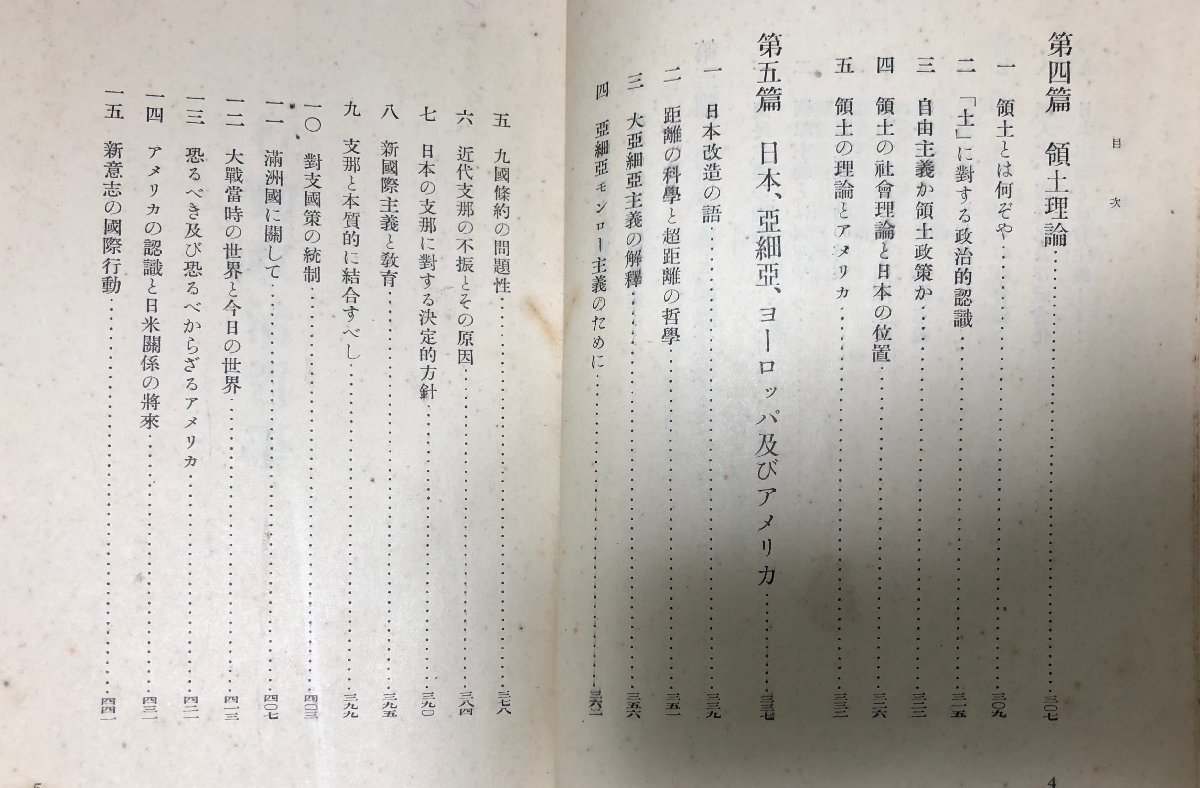 目次
第四篇 領土理論……三〇七
一 領土とは何ぞや……三〇九
二 「土」に對する政治的認識……三一五
三 自由主義か領土政策か……三二三
四 領土の社會理論と日本の位置……三二六
五 領土の理論とアメリカ……三三二
第五篇 日本、亞細亞、ヨーロッパ及びアメリカ……三三七
一 日本改造の語……三三九
二 距離の科學と超距離の哲學……三五一
三 大亞細亞主義の解釋……三五六
四 亞細亞モンロー主義のために……三六二
4
五 九國條約の問題性……三七八
六 近代支那の不振とその原因……三八四
七 日本の支那に對する決定的方針……三九〇
八 新國際主義と教育……三九五
九 支那と本質的に結合すべし……三九九
一〇 對支國策の統制……四〇三
一一 滿洲國に關して……四〇七
一二 大戰當時の世界と今日の世界……四一三
一三 恐るべき及び恐るべからざるアメリカ……四二一
一四 アメリカの認識と日米關係の將來……四三一
一五 新意志の國際行動……四四一
5